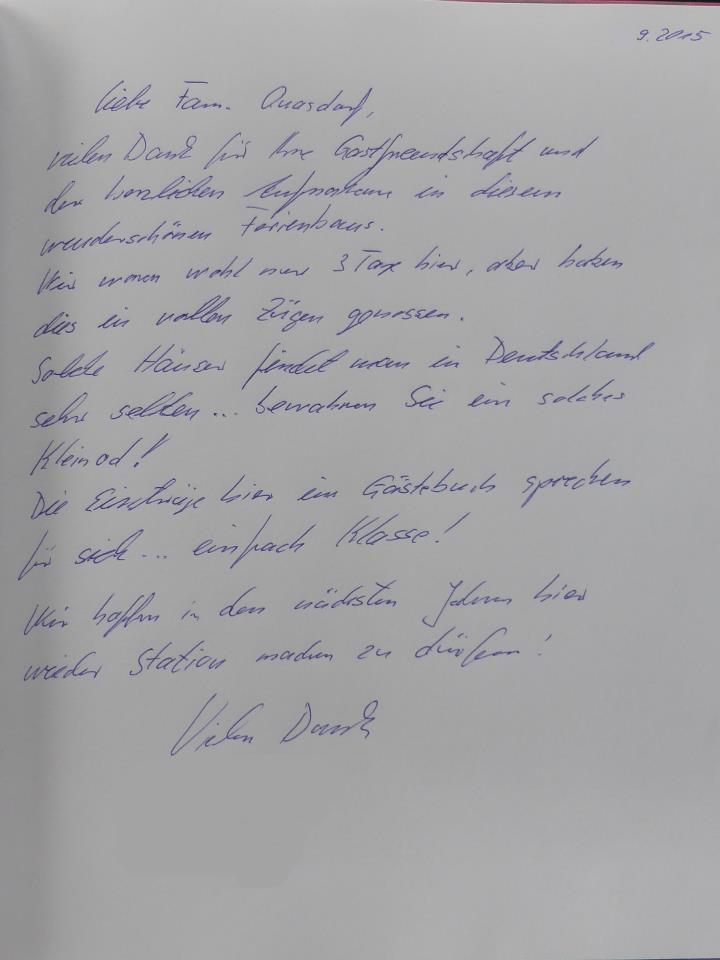 9.2015
Liebe Fam. Quasdorf,
vielen Dank für Ihre Gastfreundschaft und
der herzlichen Aufnahme in diesem
wunderschönen Ferienhaus.
Wir waren wohl nur 3 Tage hier, aber haben
dies in vollen Zügen genossen.
Solche Häuser findet man in Deutschland
sehr selten... bewahren Sie ein solches
Kleinod!
Die Einträge hier im Gästebuch sprechen
für sich... einfach Klasse!
Wir hoffen in den nächsten Jahren hier
wieder Station machen zu dürfen!
Vielen Dank